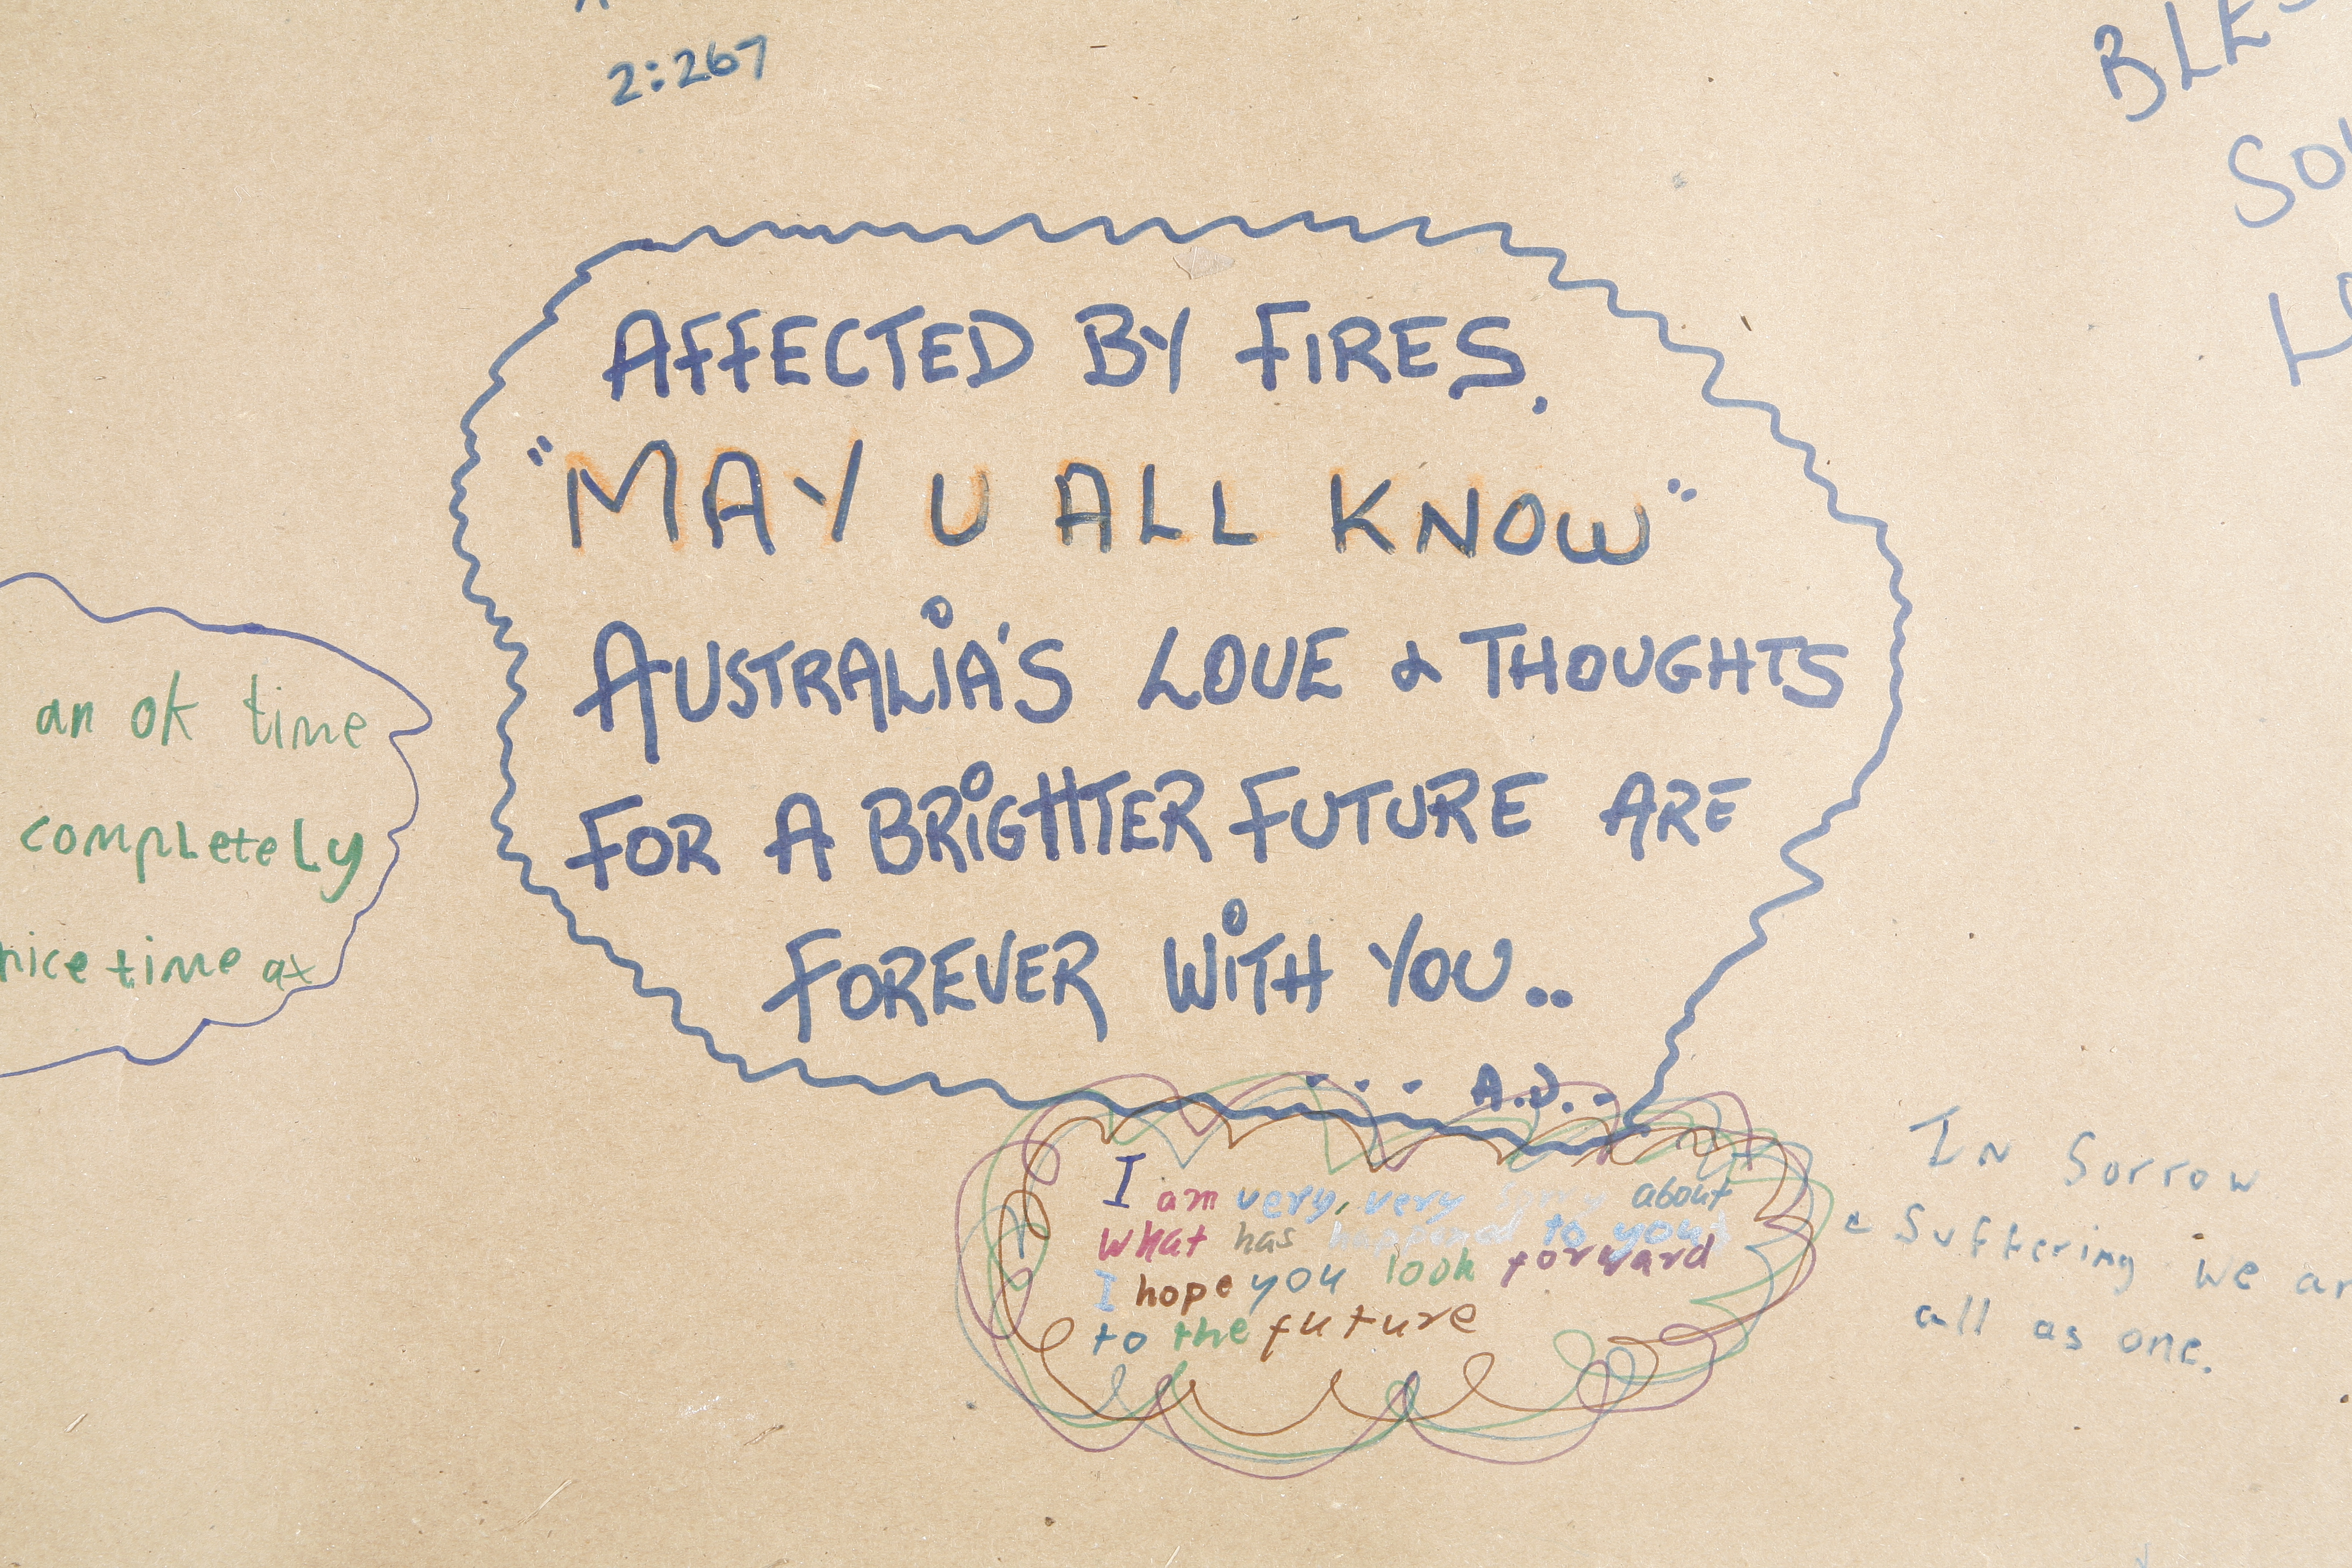 2:267
AFFECTED BY FIRES.
"MAY U ALL KNOW"
AUSTRALIA'S LOVE & THOUGHTS
FOR A BRIGHTER FUTURE ARE
FOREVER WITH YOU..
... A.D..
an ok time
completely
nice time at
I am very, very sorry about
what has happened to you
I hope you look forward
to the future
In Sorrow
& Suffering we
all as one.